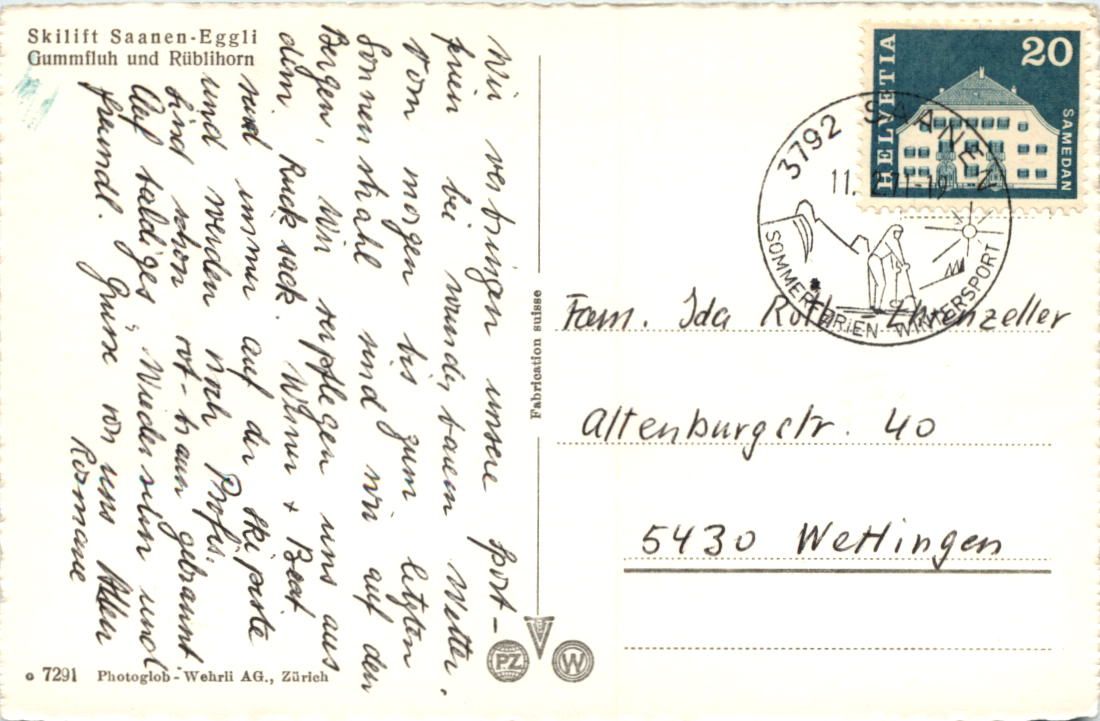 Skilift Saanen-Eggli
Gummfluh und Rüblihorn
Wir verbringen unsere Sport-
ferien bei wunderbarem Wetter.
Vom morgen bis zum letzten
Sonnenstrahl sind wir auf den
Bergen. Wir verpflegen uns aus
dem Rucksack. Werner + Beat
sind immer auf der Skipiste
und werden noch Profis.
Sind schon rot-braun gebrannt
Auf baldiges Wiedersehn und
freundl. Grüsse von uns Allen
Rosmarie
7291 Photoglob-Wehrli AG., Zürich
Fabrication suisse
PZ
W
HELVETIA
20
SAMEDAN
3792 SAANEN
11. 2. 71-19
SOMMERFERIEN-WINTERSPORT
Fam. Ida Roth-Ehrenzeller
Altenburgstr. 40
5430 Wettingen